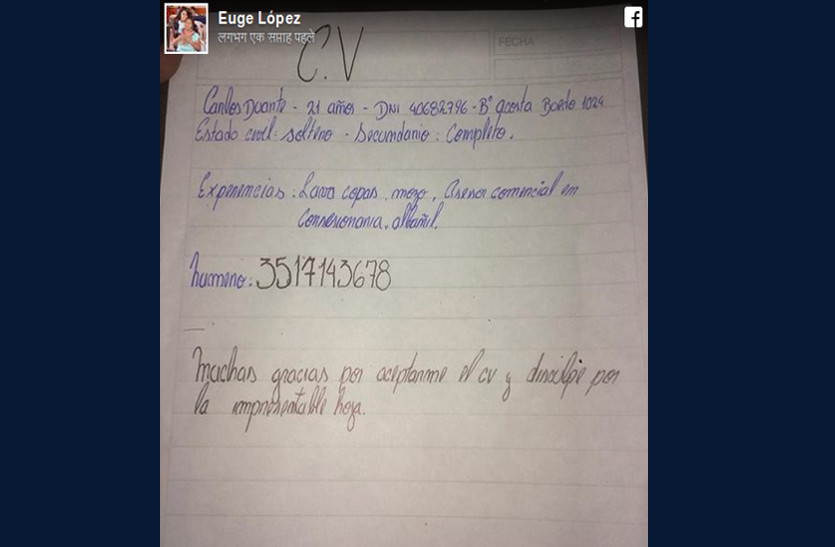 Euge López
लगभग एक सप्ताह पहले
FECHA
C.V
Carlos Duarte - 21 años - DNI 40682796 - B° acosta Boedo 1024
Estado civil: soltero - Secundario: Completo.
Experiencias: Lava copas, mozo, Asesor comercial en
Consesionaria, albañil.
Numero: 3517143678
Muchas gracias por aceptarme el cv y disculpe por
la impresentable hoja.